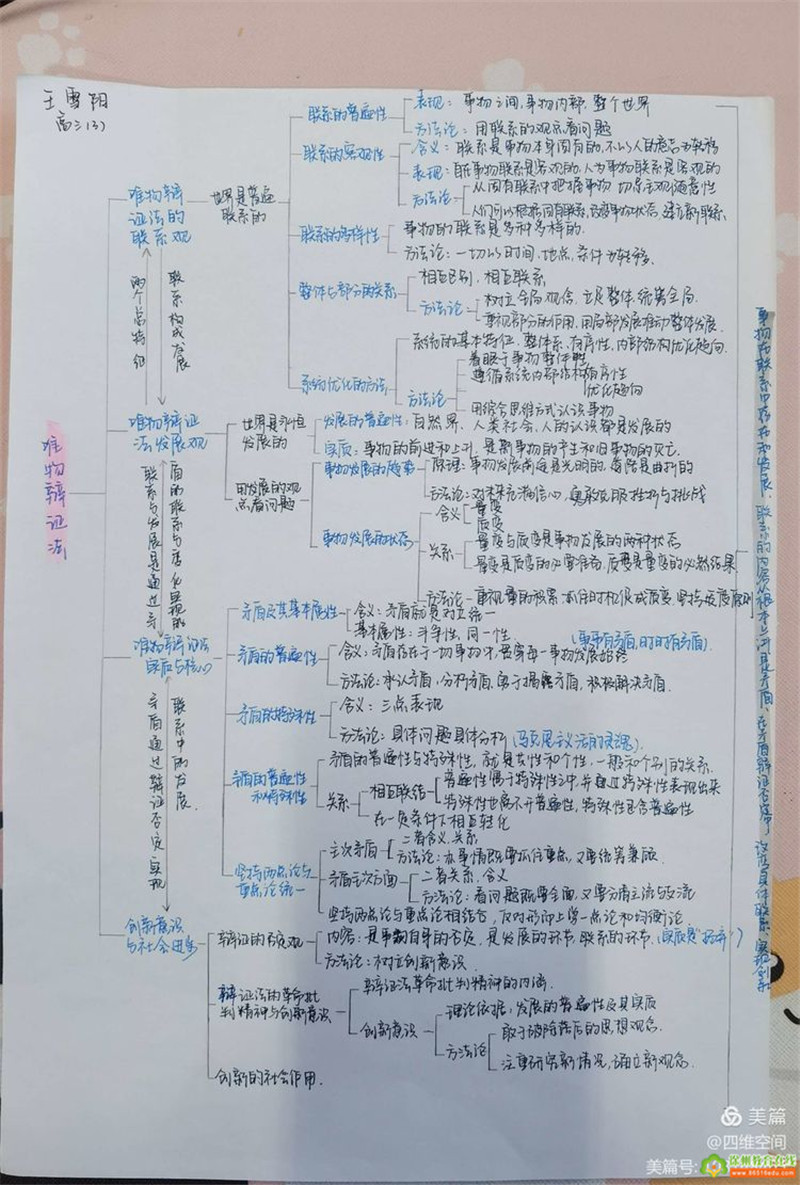 王雪阳
高三(3)
唯物辩证法
唯物辩证法的联系观
世界是普遍联系的
联系的普遍性
表现：事物之间，事物内部，整个世界
方法论：用联系的观点看问题
联系的客观性
含义：联系是事物本身固有的，不以人的意志为转移
表现：自在事物联系是客观的，人为事物联系是客观的
方法论
从固有联系中把握事物 切忌主观随意性
人们可以根据固有联系，改变事物状态，建立新联系
联系的多样性
事物的联系是多种多样的.
方法论：一切以时间，地点，条件为转移.
整体与部分的关系
相互区别，相互联系
方法论
树立全局观念，立足整体，统筹全局.
重视部分的作用，用局部发展推动整体发展.
系统优化的方法
系统的基本特征，整体系，有序性，内部结构优化趋向.
方法论
着眼于事物整体性
遵循系统内部结构有序性
优化趋向
用综合思维方式认识事物
两个总特征
联系构成发展
唯物辩证法发展观
世界是永恒发展的
发展的普遍性：自然界，人类社会，人的认识都是发展的
实质：事物的前进和上升，是新事物的产生和旧事物的灭亡.
用发展的观点看问题
事物发展的趋势
原理：事物发展前途是光明的，道路是曲折的
方法论：对未来充满信心，勇敢克服挫折与挑战
事物发展的状态
含义
量变
质变
关系
量变与质变是事物发展的两种状态
量变是质变的必要准备，质变是量变的必然结果
方法论：重视量的积累，抓住时机促成质变，坚持适度原则
联系与发展是通过矛
盾的联系与变化实现的
唯物辩证法实质与核心
矛盾及其基本属性
含义：矛盾就是对立统一
基本属性：斗争性，同一性.
矛盾的普遍性
(事事有矛盾，时时有矛盾).
含义：矛盾存在于一切事物中，贯穿每一事物发展始终
方法论：承认矛盾，分析矛盾，勇于揭露矛盾，积极解决矛盾.
矛盾的特殊性
含义：三点表现
方法论：具体问题具体分析 (马克思主义活的灵魂).
矛盾的普遍性和特殊性
矛盾的普遍性与特殊性，就是共性和个性，一般和个别的关系.
关系
相互联结
普遍性寓于特殊性之中，并通过特殊性表现出来
特殊性也离不开普遍性，特殊性包含普遍性
在一定条件下相互转化
坚持两点论与重点论统一
主次矛盾
二者含义，关系
方法论：办事情既要抓住重点，又要统筹兼顾.
矛盾主次方面
二者关系，含义
方法论：看问题既要全面，又要分清主流与支流
坚持两点论与重点论相结合，反对形而上学一点论和均衡论
矛盾通过辩证否定实现
联系中的发展.
创新意识与社会进步
辩证的否定观
内容：是事物自身的否定，是发展的环节，联系的环节. (实质是"扬弃")
方法论：树立创新意识.
辩证法的革命批判精神与创新意识
辩证法革命批判精神的内涵.
创新意识
理论依据：发展的普遍性及其实质
方法论
敢于破除落后的思想观念.
注重研究新情况，确立新观念.
创新的社会作用.
事物在联系中存在和发展，联系的内容从根本上讲是矛盾，在矛盾辩证否定中
美篇
@四维空间
美篇号：
www.86516edu.com